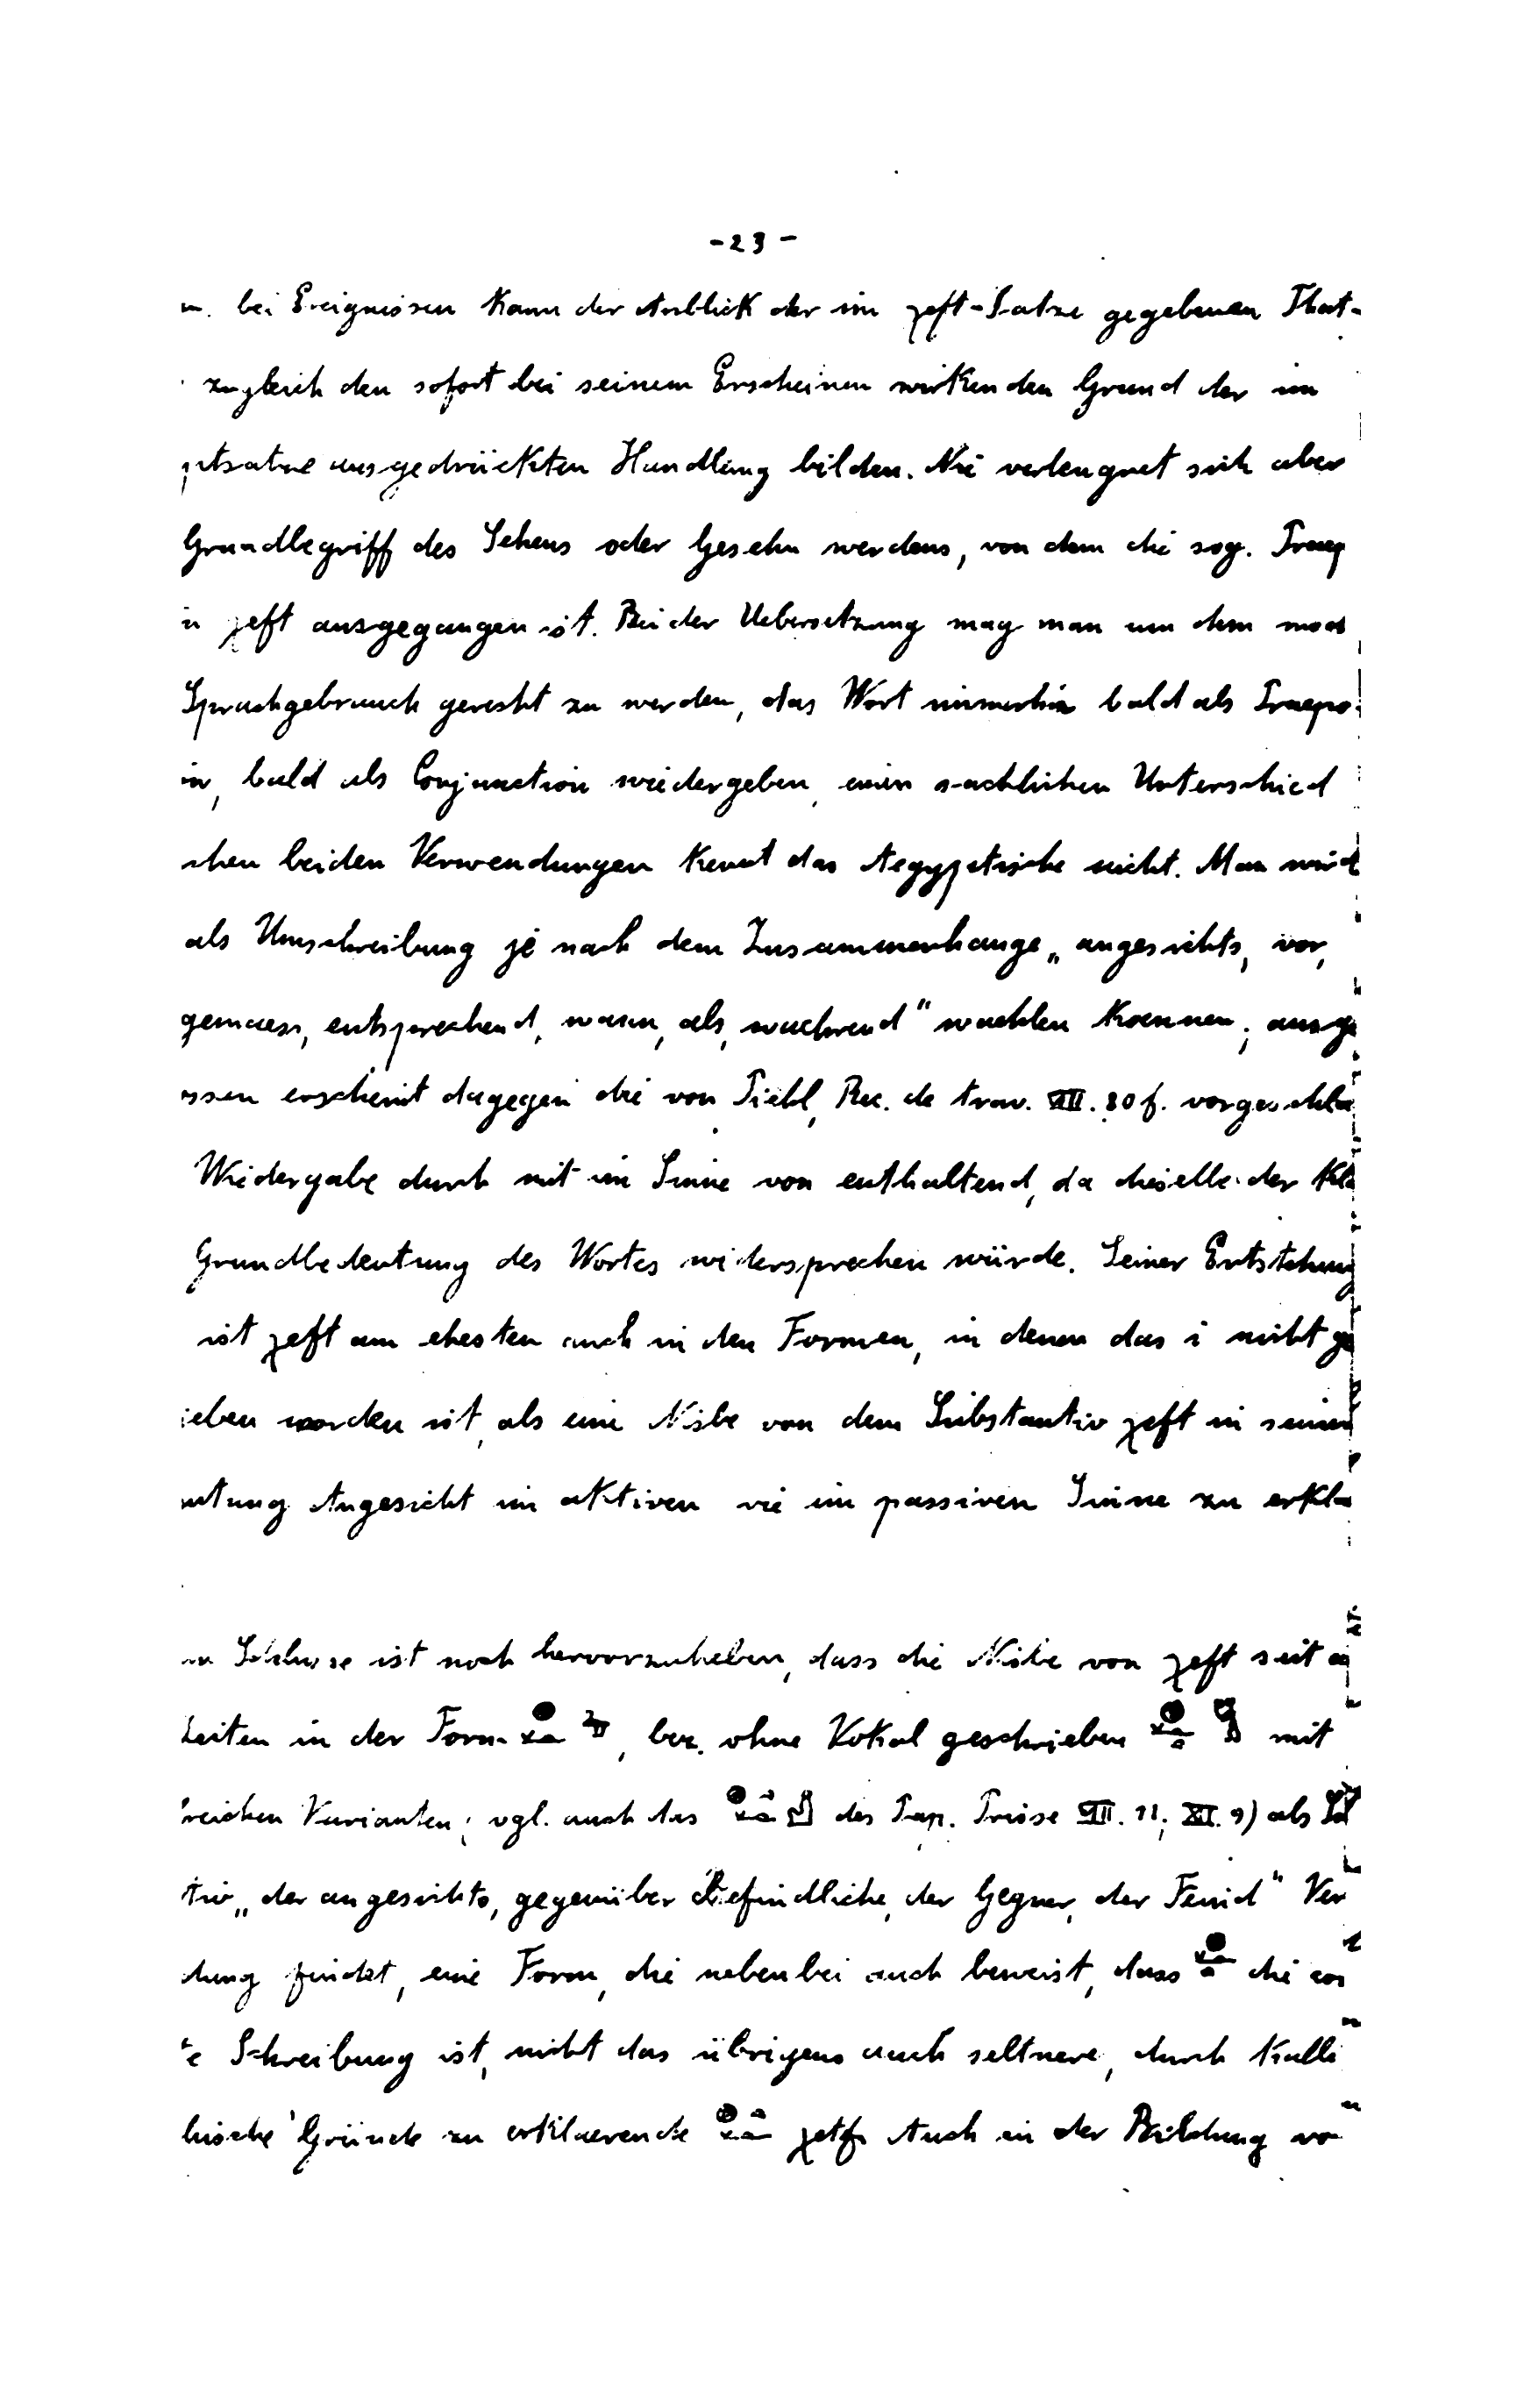 -23-
bei Ereignissen kann der Anblick der im χeft-Satze gegebenen That-
zugleich den sofort bei seinem Erscheinen wirkenden Grund der im
ptsatze ausgedrückten Handlung bilden. Nie verleugnet sich aber
Grundbegriff des Sehens oder Gesehn werdens, von dem die sog. Praep
n χeft ausgegangen ist. Bei der Uebersetzung mag man um dem mod
Sprachgebrauch gerecht zu werden, das Wort immerhin bald als Praepo
n, bald als Conjunction wiedergeben, einen sachlichen Unterschied
chen beiden Verwendungen kennt das Aegyptische nicht. Man wird
als Umschreibung je nach dem Zusammenhange „angesichts, vor,
gemaess, entsprechend, wann, als, waehrend" waehlen koennen; ausge
ssen erscheint dagegen die von Piehl, Rec. de trav. XII. 80 f. vorgeschla
Wiedergabe durch mit im Sinne von enthaltend, da dieselbe der kla
Grundbedeutung des Wortes widersprechen würde. Seiner Entstehung
ist χeft am ehesten auch in den Formen, in denen das i nicht ge
ieben worden ist, als eine Nisbe von dem Substantiv χeft in seiner
utung Angesicht im aktiven wie im passiven Sinne zu erkla
m Schlusse ist noch hervorzuheben, dass die Nisbe von χeft seit a
Zeiten in der Form , bez. ohne Vokal geschrieben mit
reichen Varianten; vgl. auch das des Pap. Prisse VII. 11; XI. 9) als Su
tiv „der angesichts, gegenüber Befindliche, der Gegner, der Feind" Ver
dung findet, eine Form, die nebenbei auch beweist, dass die cor
te Schreibung ist, nicht das übrigens auch seltnere, durch kalli
hische Gründe zu erklaerende χetf. Auch in der Bildung vo